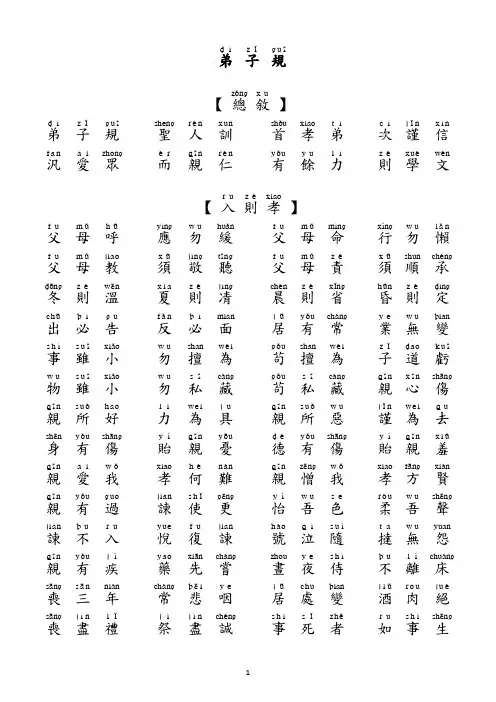 dì zǐ guī
弟子規
zǒng xù
【總敘】
dì zǐ guī shèng rén xùn shǒu xiào tì cì jǐn xìn
弟子規 聖人訓 首孝弟 次謹信
fàn ài zhòng ér qīn rén yǒu yú lì zé xué wén
汎愛眾 而親仁 有餘力 則學文
rù zé xiào
【入則孝】
fù mǔ hū yìng wù huǎn fù mǔ mìng xíng wù lǎn
父母呼 應勿緩 父母命 行勿懶
fù mǔ jiào xū jìng tīng fù mǔ zé xū shùn chéng
父母教 須敬聽 父母責 須順承
dōng zé wēn xià zé jìng chén zé xǐng hūn zé dìng
冬則溫 夏則凊 晨則省 昏則定
chū bì gù fǎn bì miàn jū yǒu cháng yè wú biàn
出必告 反必面 居有常 業無變
shì suī xiǎo wù shàn wéi gǒu shàn wéi zǐ dào kuī
事雖小 勿擅為 苟擅為 子道虧
wù suī xiǎo wù sī cáng gǒu sī cáng qīn xīn shāng
物雖小 勿私藏 苟私藏 親心傷
qīn suǒ hào lì wèi jù qīn suǒ wù jǐn wèi qù
親所好 力為具 親所惡 謹為去
shēn yǒu shāng yí qīn yōu dé yǒu shāng yí qīn xiū
身有傷 貽親憂 德有傷 貽親羞
qīn ài wǒ xiào hé nán qīn zēng wǒ xiào fāng xián
親愛我 孝何難 親憎我 孝方賢
qīn yǒu guò jiàn shǐ gēng yí wú sè róu wú shēng
親有過 諫使更 怡吾色 柔吾聲
jiàn bú rù yuè fù jiàn háo qì suí tà wú yuàn
諫不入 悅復諫 號泣隨 撻無怨
qīn yǒu jí yào xiān cháng zhòu yè shì bù lí chuáng
親有疾 藥先嘗 晝夜侍 不離床
sāng sān nián cháng bēi yè jū chù biàn jiǔ ròu jué
喪三年 常悲咽 居處變 酒肉絕
sāng jìn lǐ jì jìn chéng shì sǐ zhě rú shì shēng
喪盡禮 祭盡誠 事死者 如事生
1